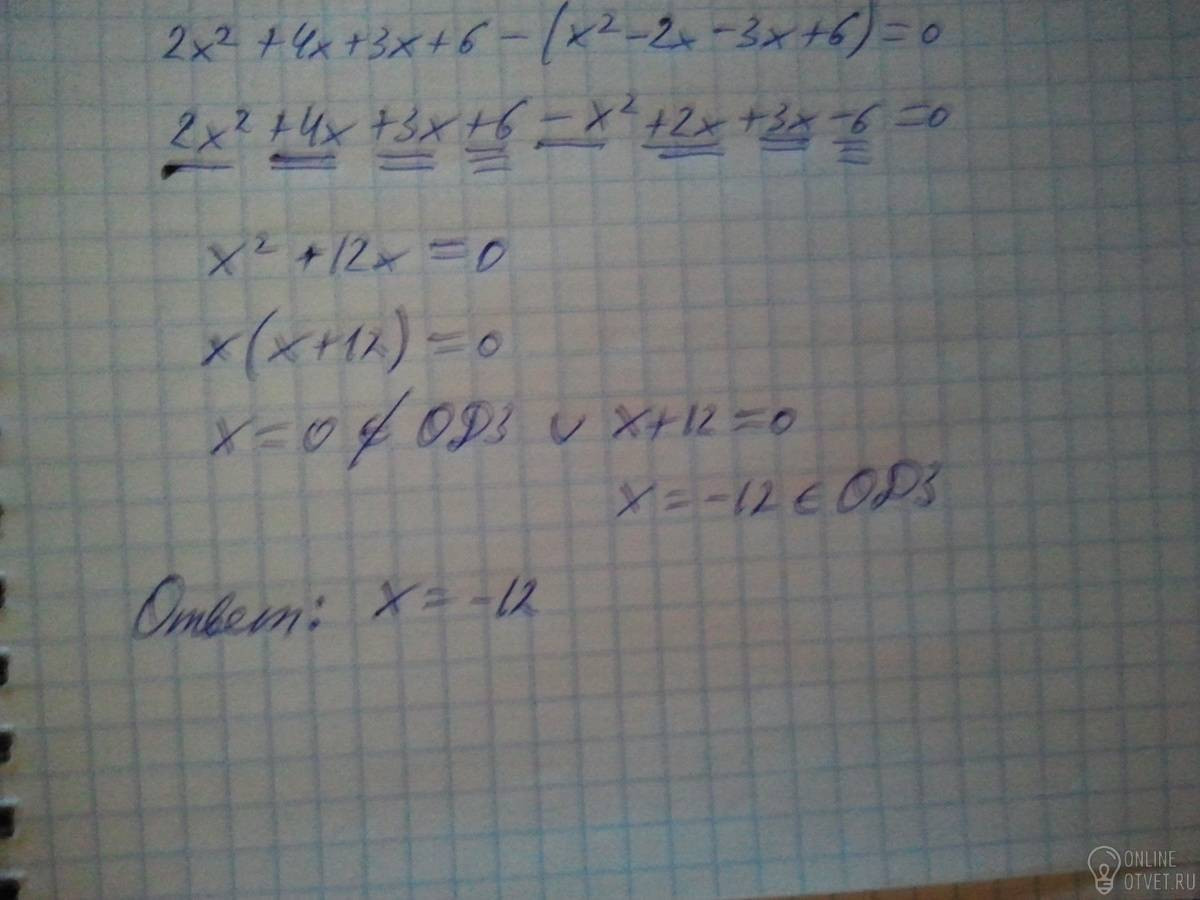 2x² +4x+3x+6 - (x²-2x-3x+6)=0
2x² +4x +3x +6 -x² +2x +3x -6 =0
x² +12x =0
x(x+12)=0
x=0 ∉ ОДЗ ∪ x+12=0
x=-12 ∈ ОДЗ
Ответ: x=-12
ONLINE
OTVET.RU